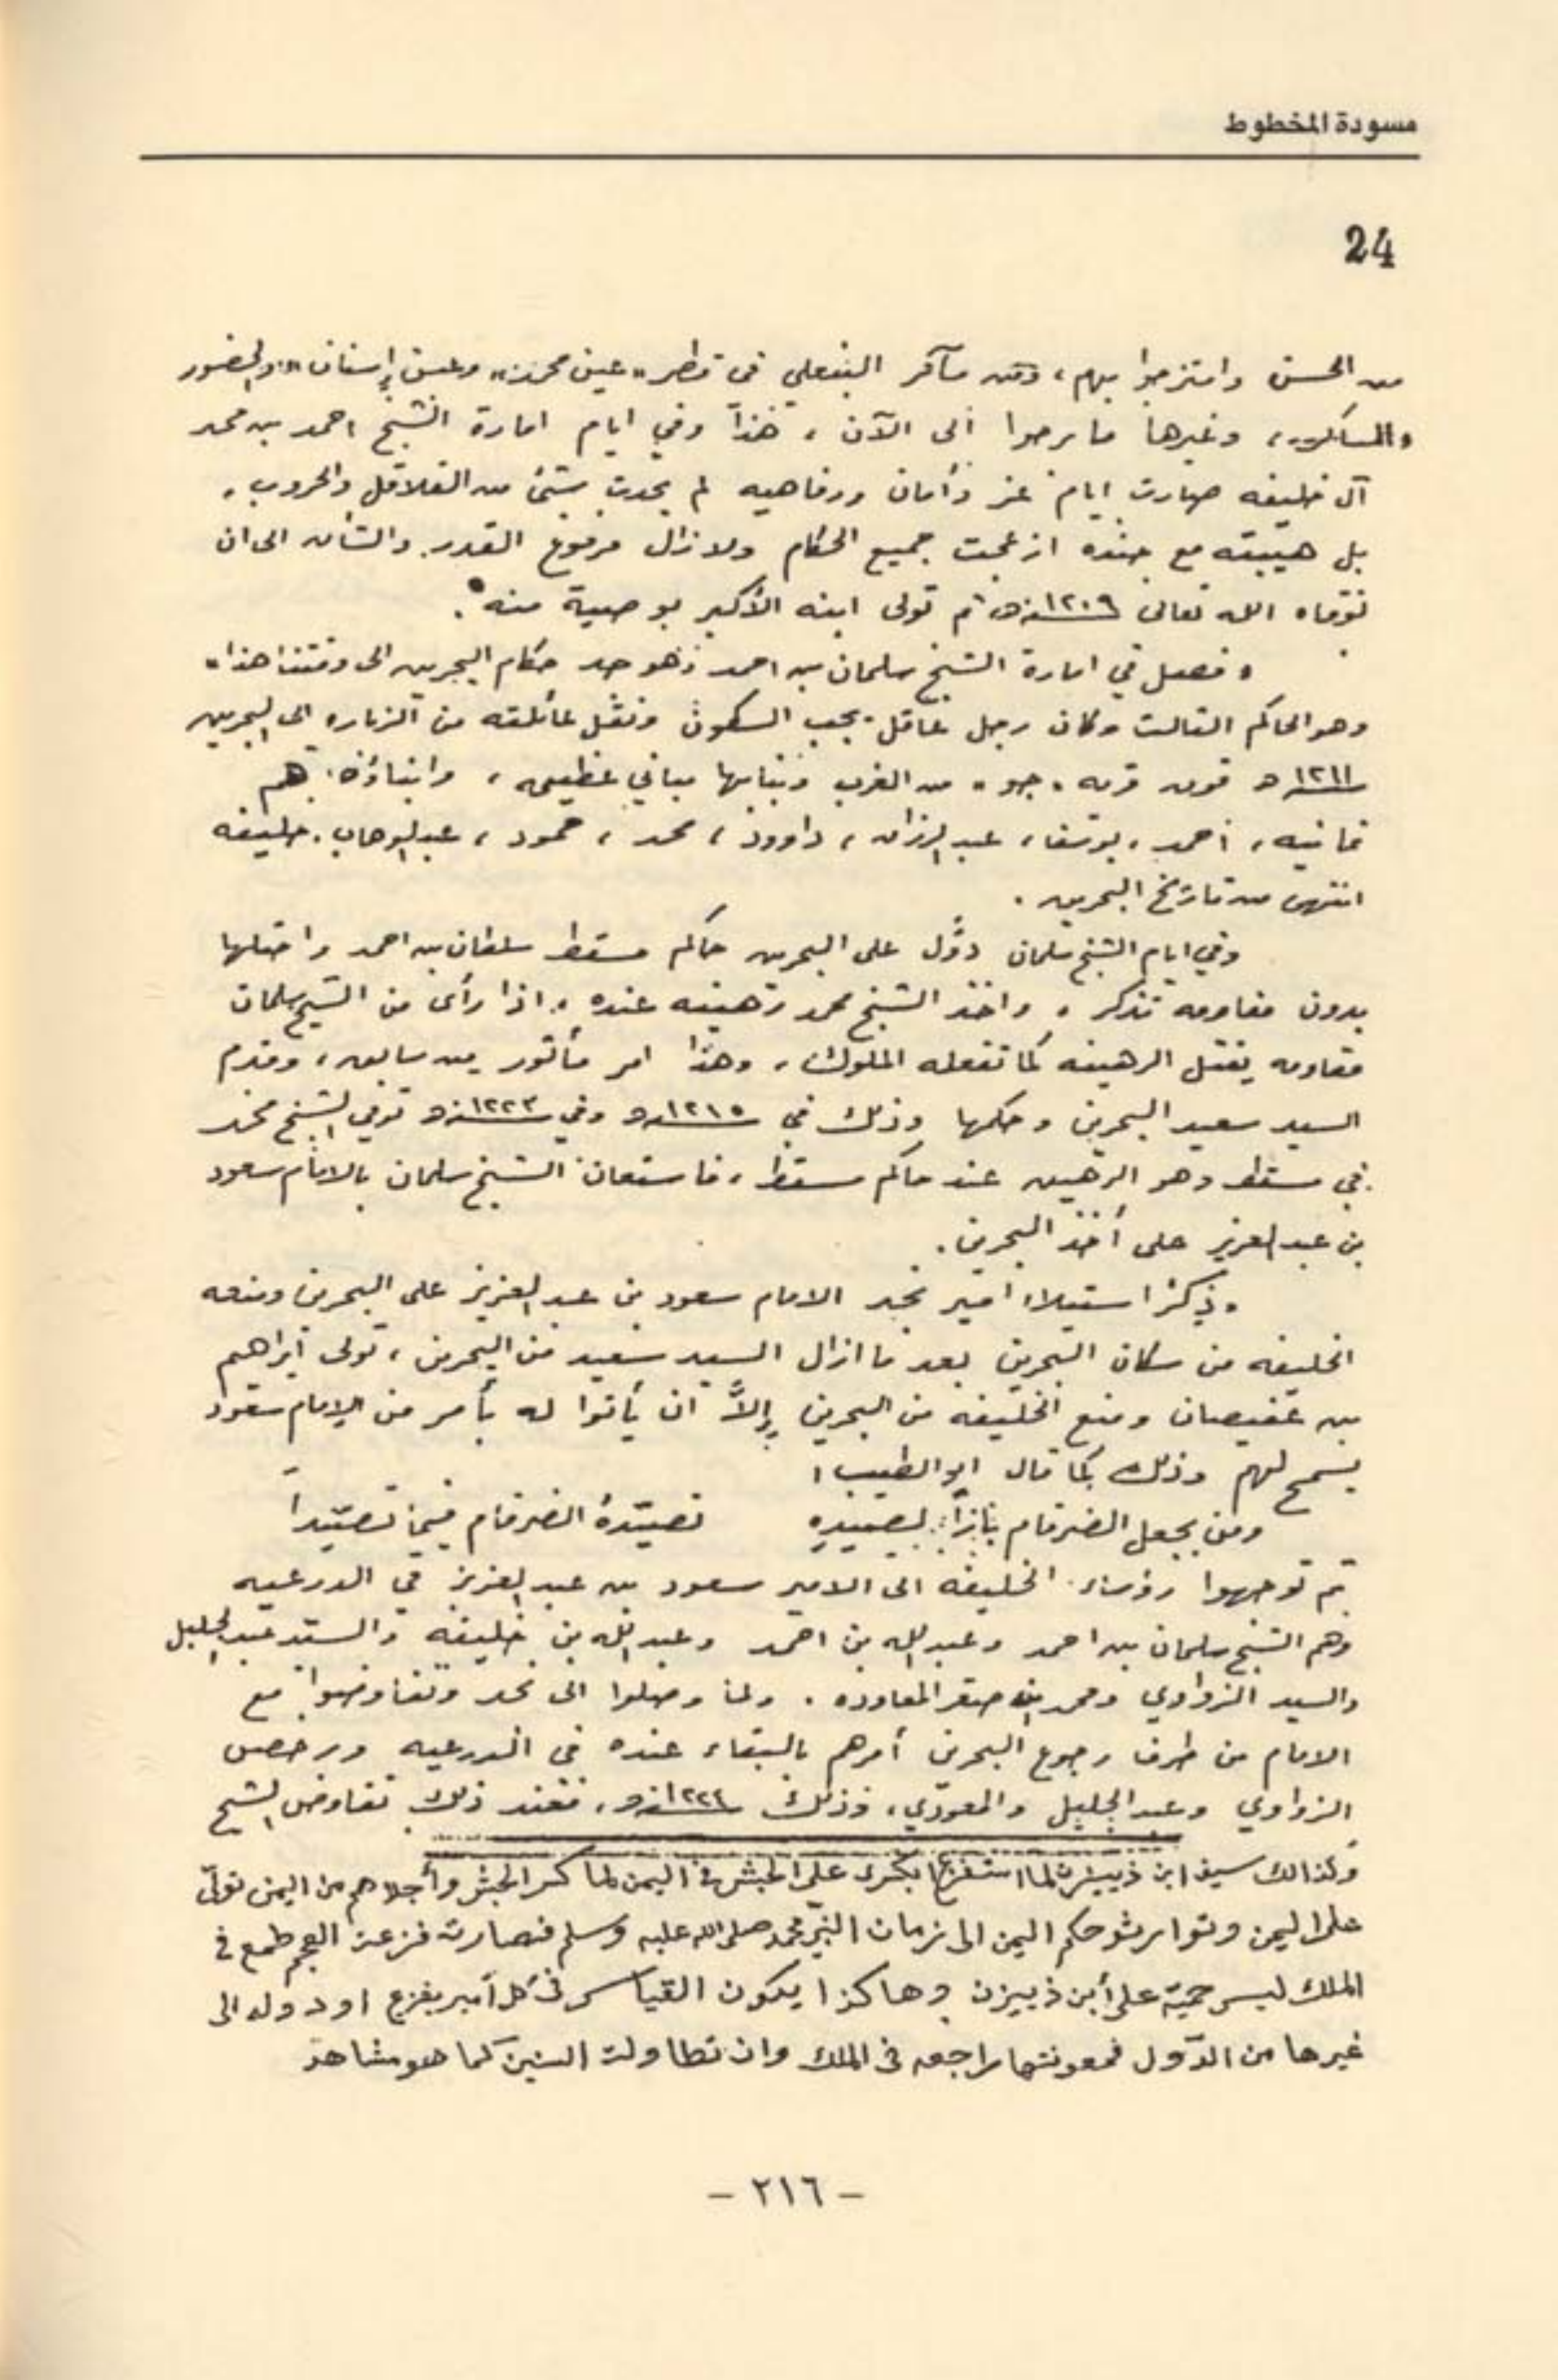 مسودة المخطوط
24
من الحسن وامتزجوا بهم، ومن مآثر البنعلي في قطر "عين محمد" وعين إسنان"، والحضور
والمساكر، وغيرها ما برحوا الى الآن، هذا وفي ايام امارة الشيخ احمد بن محمد
آل خليفه صارت ايام عز وأمان ورفاهيه لم يحدث شئ من القلاقل والحروب.
بل هيبته مع جنده ازعجت جميع الحكام ولازال مرفوع القدر والشأن الى ان
توفاه الله تعالى ١٢٠٩هـ ثم تولى ابنه الأكبر بوصية منه.
فصل في امارة الشيخ سلمان بن احمد وهو جد حكام البحرين الى وقتنا هذا
وهو الحاكم الثالث وكان رجل عاقل يحب السكون ونقل عائلته من الزباره الى البحرين
١٢١١هـ فوق قريه، جو، من الغرب وبنا بها مباني عظيمه، وابناؤه هم
ثمانيه، احمد، يوسف، عبد الرزاق، داوود، محمد، حمود، عبد الوهاب، خليفه
انتهى من تاريخ البحرين.
وفي ايام الشيخ سلمان دوَّل على البحرين حاكم مسقط سلطان بن احمد واحتلها
بدون مقاومه تذكر، واخذ الشيخ محمد رهينه عنده، اذا رأى من الشيخ سلمان
مقاومه يقتل الرهينه كما تفعله الملوك، وهذا امر مأثور من سابق، وقدم
السيد سعيد البحرين وحكمها وذلك في ١٢١٥هـ وفي ١٢٢٣هـ توفي الشيخ محمد
في مسقط وهو الرهين عند حاكم مسقط، فاستعان الشيخ سلمان بالامام سعود
بن عبد العزيز على أخذ البحرين.
ذكر استيلاء امير نجد الامام سعود بن عبد العزيز على البحرين ومنعه
الخليفه من سكان البحرين بعد ما ازال السيد سعيد من البحرين، تولى ابراهيم
بن عفيصان ومنع الخليفه من البحرين إلاَّ ان يأتوا له بأمر من الإمام سعود
يسمح لهم وذلك كما قال ابو الطيب؛
ومن يجعل الضرغام بازاً لصيده تصيّدهُ الضرغام فيما تصيّدا
ثم توجهوا رؤساء الخليفه الى الامير سعود بن عبد العزيز في الدرعيه
وهم الشيخ سلمان بن احمد وعبد الله بن احمد وعبد الله بن خليفه والسيد عبد الجليل
والسيد الزواوي ومحمد بن صقر المعاوده. ولما وصلوا الى نجد وتفاوضوا مع
الامام من طرف رجوع البحرين أمرهم بالبقاء عنده في الدرعيه ورخص
الزواوي وعبد الجليل والمعودي، وذلك ١٢٢٤هـ، فعند ذلك تفاوض الشيخ
وكذالك سيف ابن ذييزن لما استفزع ابكسرى على الحبش في اليمن لما كسر الحبش وأجلاهم من اليمن تولّى
على اليمن وتوارثو حكم اليمن الى زمان النبي محمد صلى الله عليه وسلم فصارت فزعت العجم طمع في
الملك ليس حميّة على أبن ذييزن وهاكذا يكون القياس في كل أمير يفزع او دوله الى
غيرها من الدّول فمعونتها مراجعه في الملك وان تطاولت السنين كما هو مشاهد
- ٢١٦ -